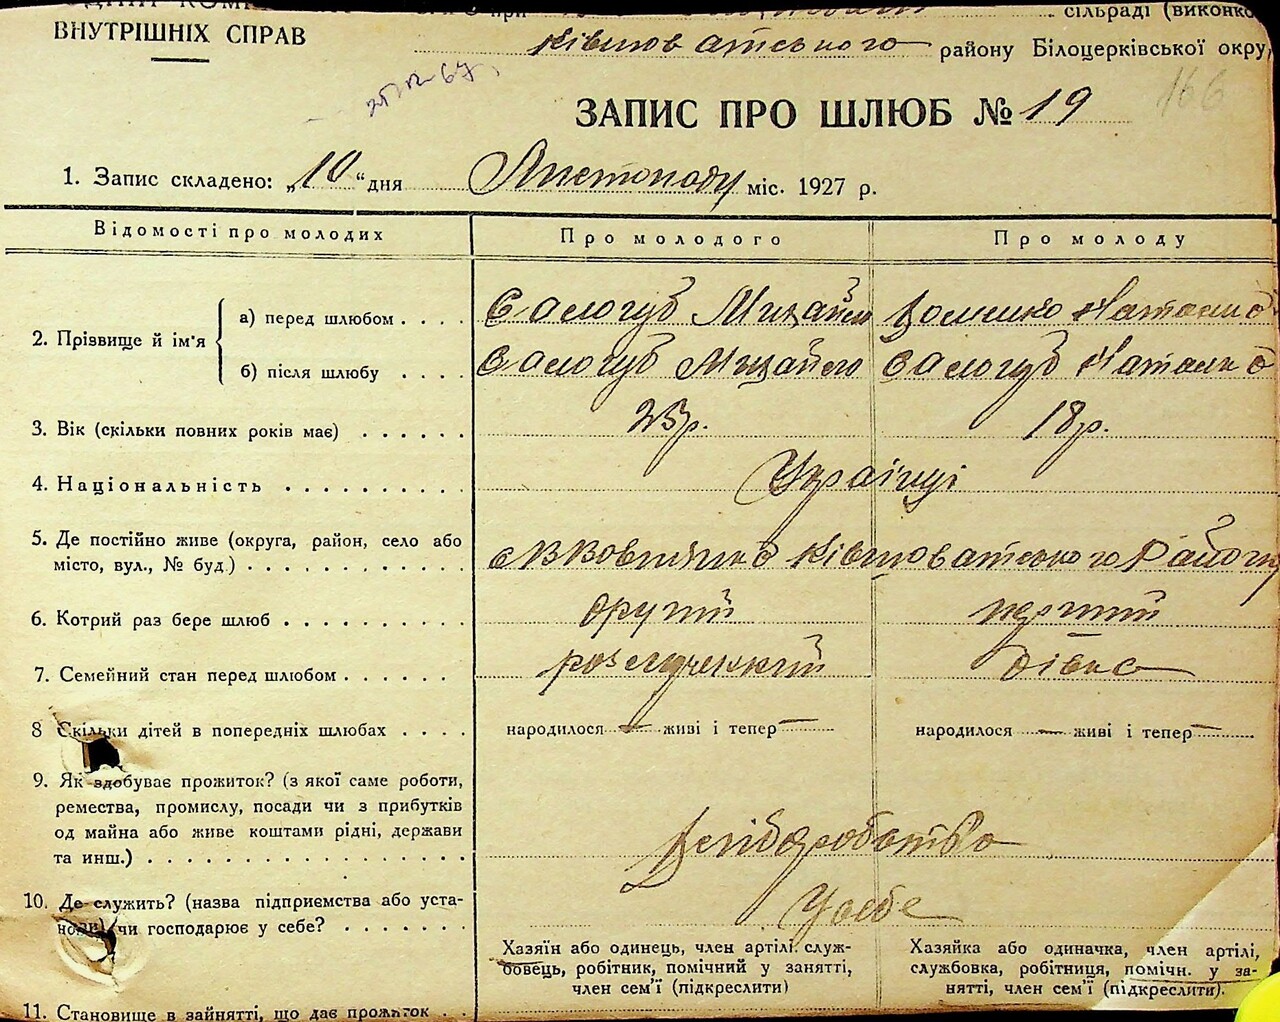 ВНУТРІШНІХ СПРАВ
сільраді (виконко
Ківшоватського району Білоцерківської окру
166
ЗАПИС ПРО ШЛЮБ № 19
1. Запис складено: „10“ дня Листопаду міс. 1927 р.
Відомості про молодих Про молодого Про молоду
2. Прізвище й ім'я
а) перед шлюбом . . . . Салогуб Михайло
б) після шлюбу . . . . Салогуб Михайло Салогуб Наталка
3. Вік (скільки повних років має) . . . . . . 23р. 18р.
4. Національність . . . . . . . . . . Українці
5. Де постійно живе (округа, район, село або
місто, вул., № буд.) . . . . . . . . . . . . Ківшоватського Району
6. Котрий раз бере шлюб . . . . . . . . . . другий перший
7. Семейний стан перед шлюбом . . . . . . . розлучений дівка
8 Скільки дітей в попередніх шлюбах . . . . народилося — живі і тепер — народилося — живі і тепер —
9. Як здобуває прожиток? (з якої саме роботи,
ремества, промислу, посади чи з прибутків
од майна або живе коштами рідні, держави
та инш.) . . . . . . . . . . . . . . . . . Хліборобство
10. Де служить? (назва підприємства або уста-
нови) чи господарює у себе? . . . . . . . У себе
Хазяїн або одинець, член артілі, служ-
бовець, робітник, помічний у занятті,
член сем'ї (підкреслити)
Хазяйка або одиначка, член артілі,
службовка, робітниця, помічн. у за-
нятті, член сем'ї (підкреслити).
11. Становище в зайнятті, що дає прожиток . .